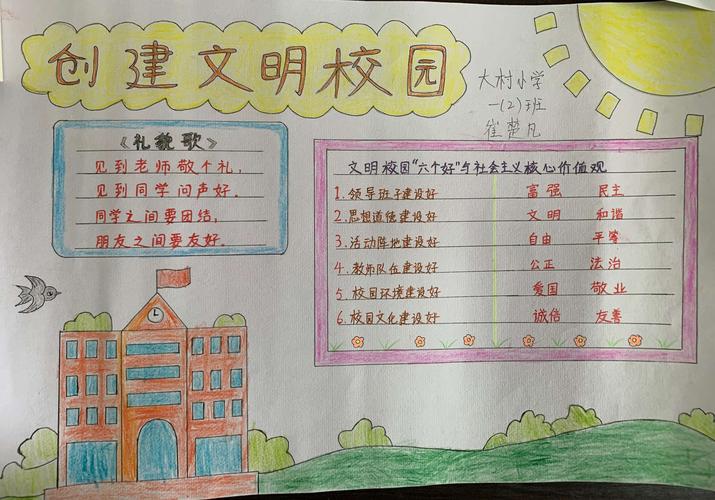 创建文明校园
大村小学
一(2)班
崔楚凡
《礼貌歌》
见到老师敬个礼，
见到同学问声好。
同学之间要团结，
朋友之间要友好。
文明校园"六个好"与社会主义核心价值观
1.领导班子建设好 富强 民主
2.思想道德建设好 文明 和谐
3.活动阵地建设好 自由 平等
4.教师队伍建设好 公正 法治
5.校园环境建设好 爱国 敬业
6.校园文化建设好 诚信 友善